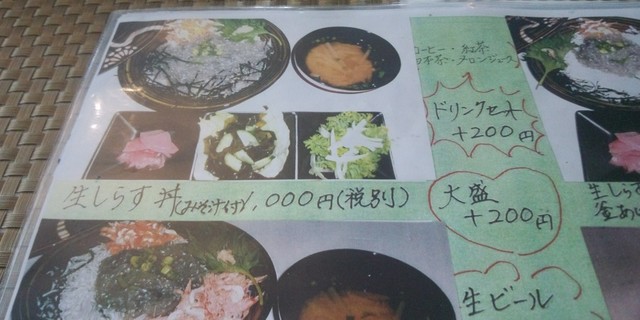 コーヒー・紅茶
ウーロン茶・メロンジュース
ドリンクセット
+200円
生しらす丼(みそ汁付)1,000円(税別)
大盛
+200円
生しらす
釜あ
生ビール